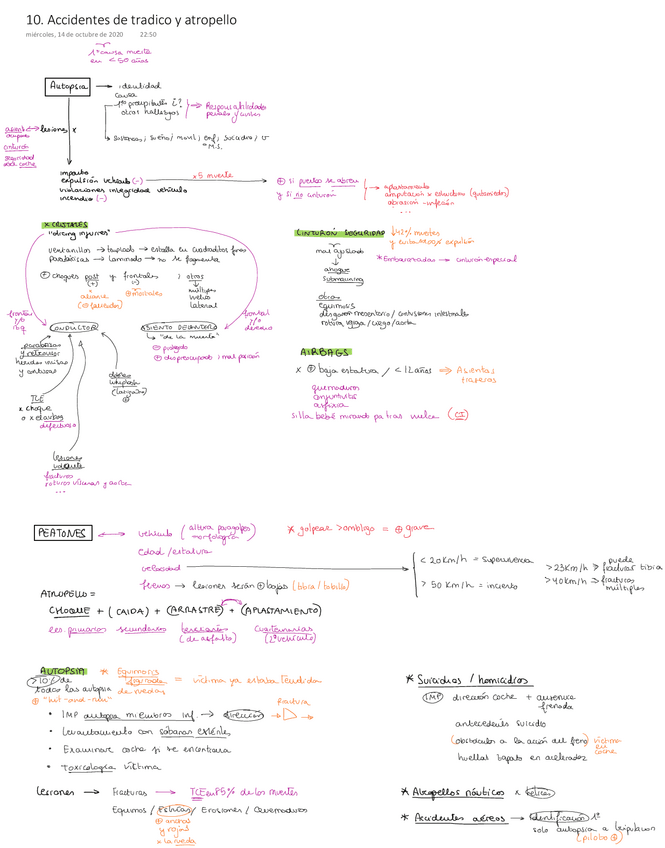 10. Accidentes de tradico y atropello
miércoles, 14 de octubre de 2020 22:50
1ª causa muerte
en < 50 años
Autopsia → identidad
causa
precipitante ¿?
otros hallazgos
→ Responsabilidades
penales y civiles
asiento
ocupado
→ lesiones x
cinturón
seguridad
→ Sustancias, sueño / movil, enf, suicidio, U
M.S.
impacto
expulsión vehículo (-)
x5 muerte
⊕ si puerta se abren
y si no cinturón
→ aplastamiento
amputación x estructura (quitamiedos)
abrasión
...
variaciones integridad vehículo
incendio (-)
x CRISTALES
"dicing injuries"
ventanillas → templado → estalla en cuadraditos finos
Parabrisas → laminado → no se fragmenta
⊕ choques post y frontales ; otros
(+) (-)
alcance
⊕ mortales
múltiples
vuelco
lateral
frontal
y/o
izq
CONDUCTOR
ASIENTO DELANTERO
↳ "de la muerte"
⊖ protegido
⊕ despreocupado, mal posición
frontal
y/o
derecho
parabrisas
y retrovisor
heridas incisas
y contusas
whiplash
(latigazo)
⊕
TCE
x choque
o x
defectuoso
lesiones
volante
fracturas
...
CINTURÓN SEGURIDAD ↓42% muertes
y evita 100% expulsión
mal ajustado
ahogue
submarining
* Embarazadas → cinturón especial
otras
equimosis
desgarro mesentérico / contusiones intestinales
rotura vejiga / ciego / aorta
AIRBAGS
x ⊕ baja estatura / < 12 años ⇒ Asientos
traseros
quemaduras
conjuntivitis
asfixia
silla bebé mirando pa tras vuelca (CI)
PEATONES ↔ vehículo (altura paragolpes)
morfología
* golpear > ombligo = ⊕ grave
edad / estatura
velocidad
< 20 Km/h = Supervivencia
> 50 Km/h = incierto
> 23 Km/h → puede
fracturas tibia
> 40 Km/h → fracturas
múltiples
frenos → lesiones serán ⊕ bajas (tibia / tobillo)
ATROPELLO =
CHOQUE + (CAIDA) + (ARRASTRE) + (APLASTAMIENTO)
les. primarias secundarias terciarias cuaternarias
(de asfalto) (2º vehículo)
AUTOPSIA * Equimosis
= víctima ya estaba tendida
> 10% de
todas las autopsia de ruedas
⊕ "hit-and-run"
• IMP autopsia miembros inf. → dirección
Fractura
• Levantamiento con sábanas estériles
• Examinar coche si se encontrara
• Toxicología víctima
Lesiones → Fracturas → TCE en 85% de los muertes
Equimos / Estrías / Erosiones / Quemaduras
⊕ anchas
y rojas
x la rueda
* Suicidios / homicidios
IMP dirección coche + ausencia
frenada
antecedentes suicidio
(obstáculos a la acción del freno) víctima
en
coche
huellas bajada en acelerador
* Atropellos náuticos x hélices
* Accidentes aéreos → identificación 1º
solo autopsia a tripulacion
(piloto ⊕)